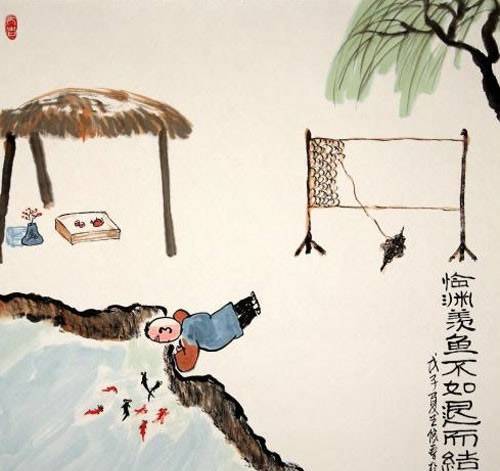 临渊羡鱼不如退而结
戊子夏